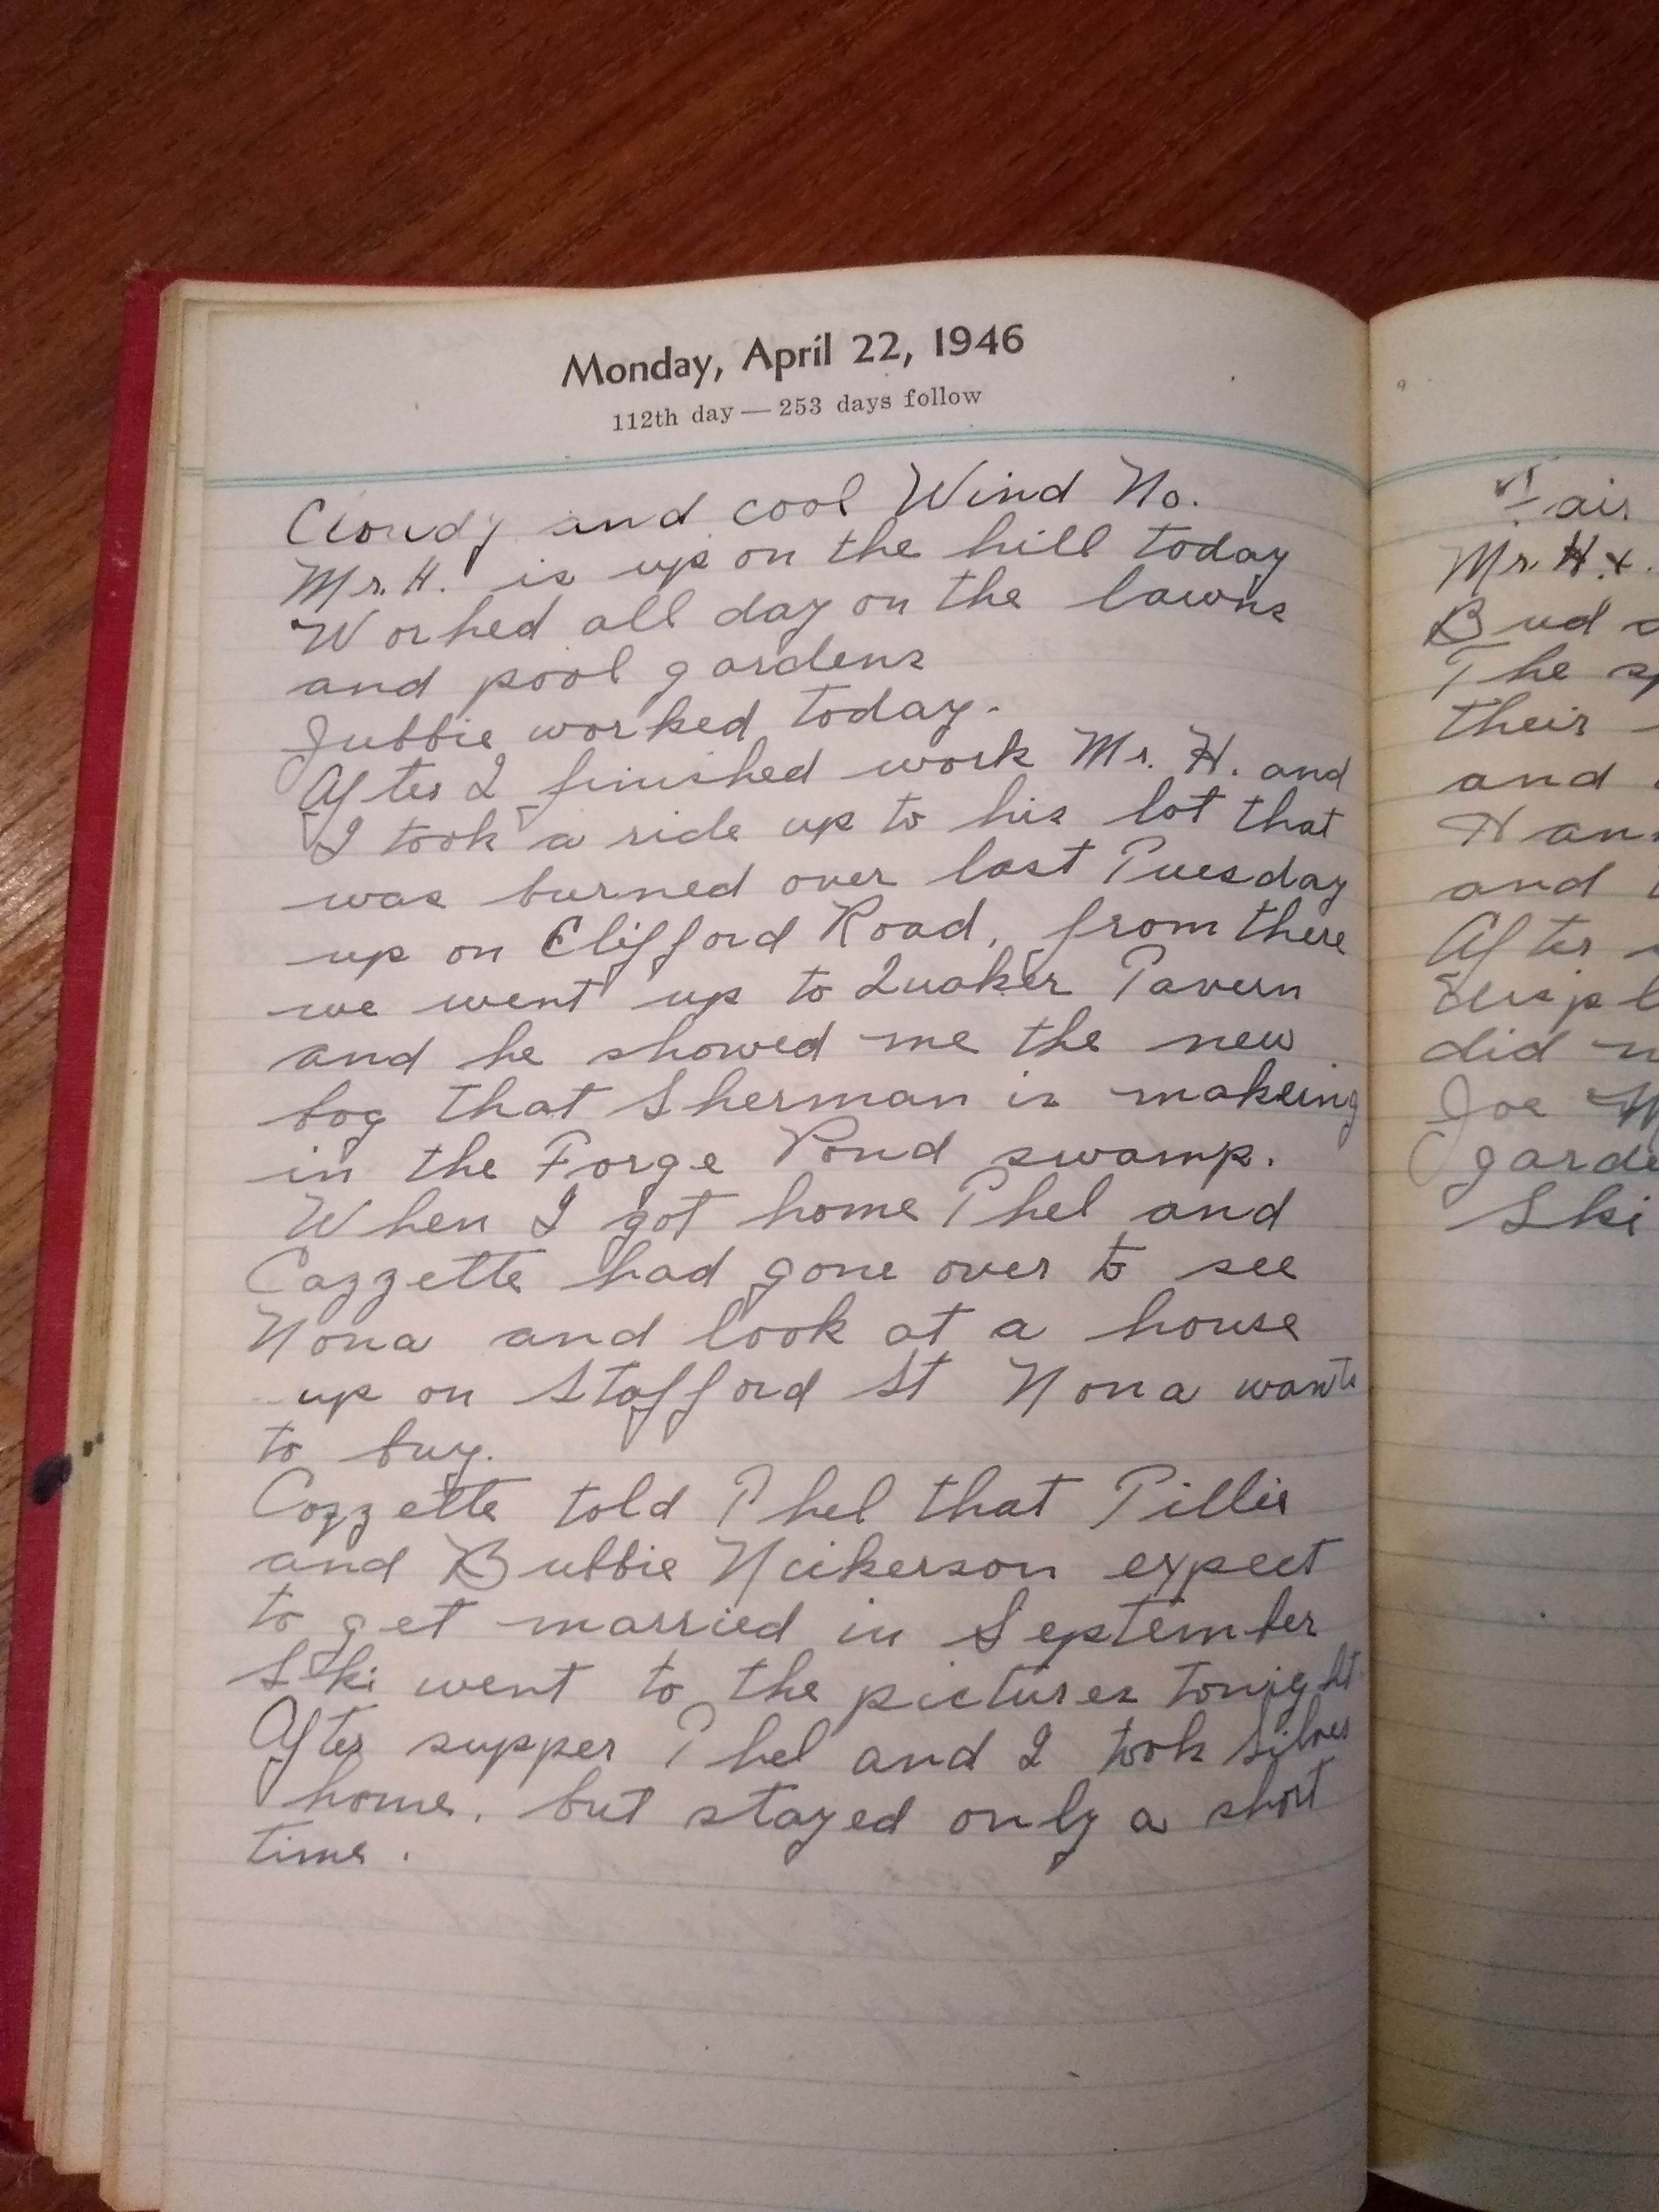 Monday, April 22, 1946
112th day — 253 days follow
Cloudy and cool Wind No.
Mr. H. is up on the hill today
Worked all day on the lawns
and pool gardens
Jubbie worked today.
After I finished work Mr. H. and
I took a ride up to his lot that
was burned over last Tuesday
up on Clifford Road, from there
we went up to Quaker Tavern
and he showed me the new
bog that Sherman is makeing
in the Forge Pond swamp.
When I got home Phel and
Cozzette had gone over to see
Nona and look at a house
up on Stafford St Nona wants
to buy.
Cozzette told Phel that Tillie
and Bubbie Nickerson expect
to get married in September
Ski went to the pictures tonight
After supper Phel and I took Silver
home. but stayed only a short
time.
Fair
Mr. H. &
Bud
The
their
and
and
After
did
Joe
Ski